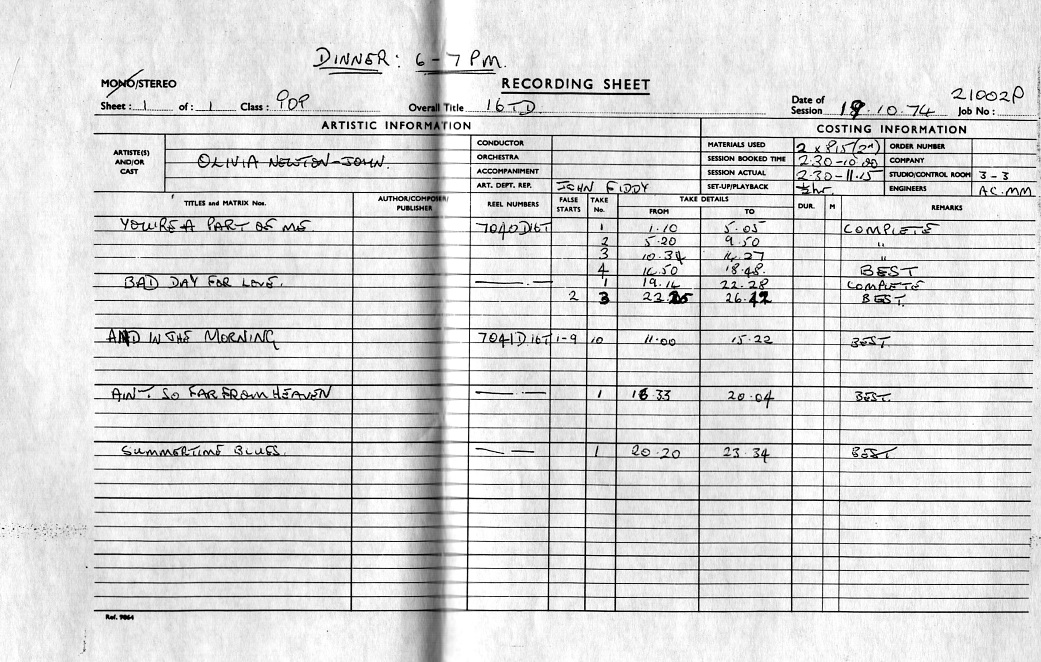 DINNER: 6-7 PM.
MONO/STEREO
RECORDING SHEET
Sheet: 1 of: 1 Class: POP Overall Title 16TD Date of Session 18.10.74 Job No: 21002P
ARTISTIC INFORMATION COSTING INFORMATION
ARTISTE(S) AND/OR CAST OLIVIA NEWTON-JOHN.
CONDUCTOR MATERIALS USED 2 x 815 (2") ORDER NUMBER
ORCHESTRA SESSION BOOKED TIME 2.30-10.00 COMPANY
ACCOMPANIMENT SESSION ACTUAL 2.30-11.15 STUDIO/CONTROL ROOM 3-3
ART. DEPT. REP. JOHN FIDDY SET-UP/PLAYBACK ½hr. ENGINEERS AC.MM
TITLES and MATRIX Nos. AUTHOR/COMPOSER PUBLISHER REEL NUMBERS FALSE STARTS TAKE No. TAKE DETAILS FROM TO DUR. M REMARKS
YOU'RE A PART OF ME 7040D16T 1 1.10 5.05 COMPLETE
2 5.20 9.50 "
3 10.34 14.27 "
4 14.50 18.48. BEST
BAD DAY FOR LOVE. 1 19.14 22.28 COMPLETE
2 3 22.35 26.12 BEST.
AND IN THE MORNING 7041D16T 1-9 10 11.00 15.22 BEST.
AIN'T. SO FAR FROM HEAVEN 1 16.33 20.04 BEST.
SUMMERTIME BLUES. 1 20.20 23.34 BEST
Ref. 9864